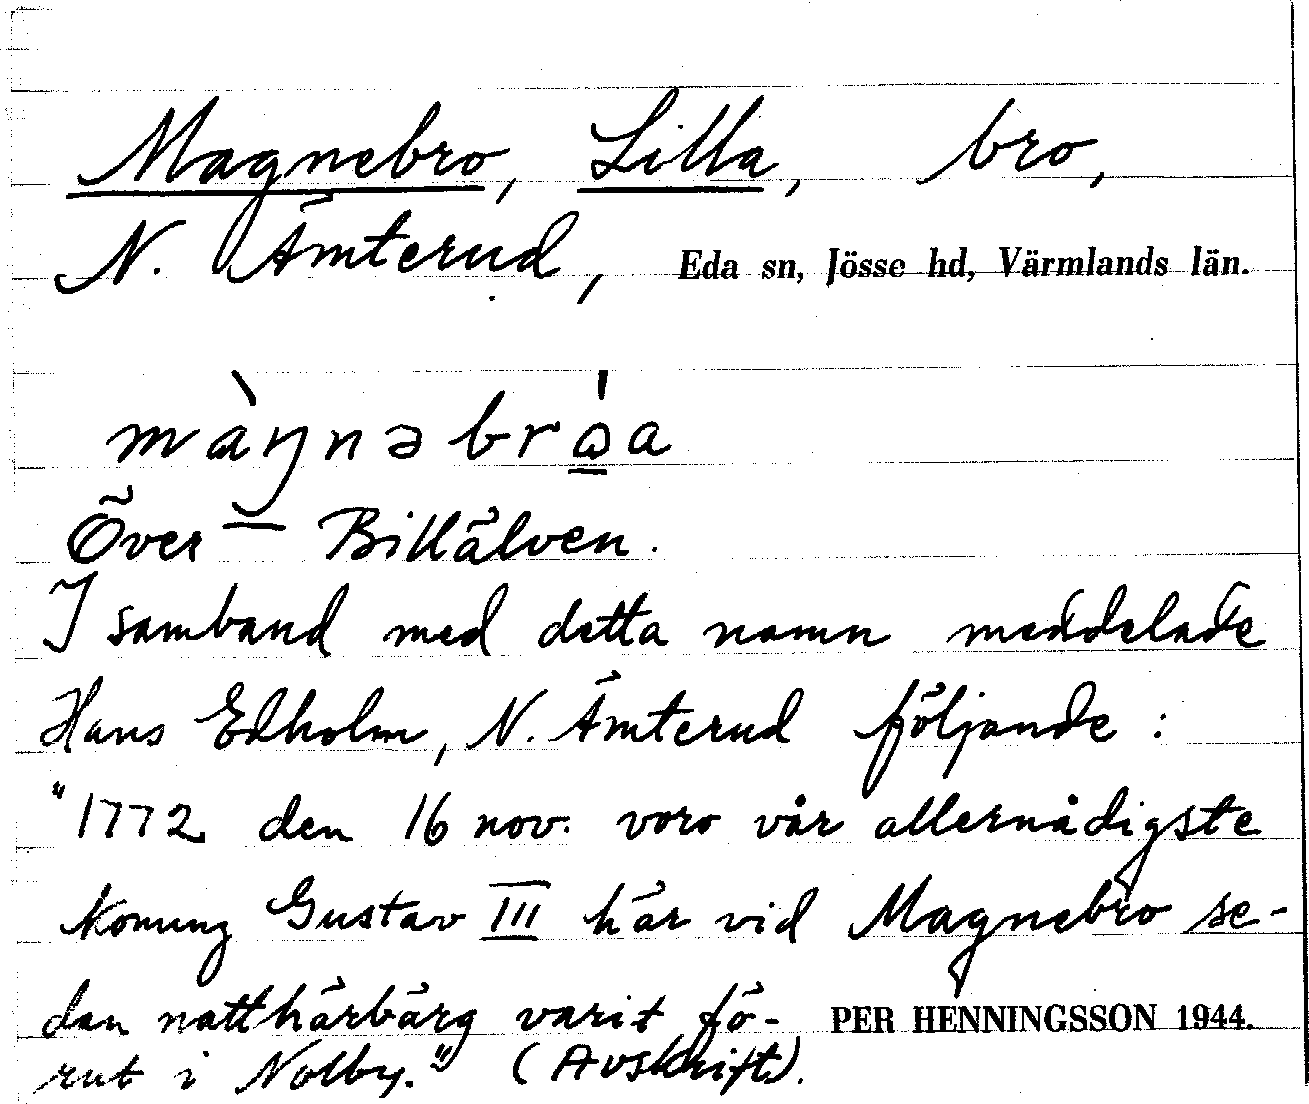 Magnebro, Lilla, bro,
N. Ämterud, Eda sn, Jösse hd, Värmlands län.
màŋnəbrǫ̀a
Över — Billälven.
I samband med detta namn meddelade
Hans Edholm, N. Ämterud följande :
"1772 den 16 nov. voro vår allernådigste
Konung Gustav III här vid Magnebro se-
dan natthärbärg varit fö- PER HENNINGSSON 1944.
rut i Nolby." (Avskrift).